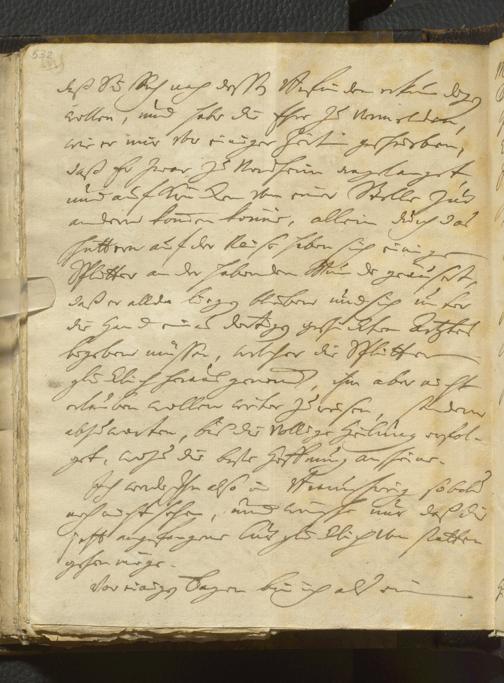 532
daß Sie Sich nach dessen Befinden erkundigen
wollen, und habe die Ehre zu vermelden,
wie er mir vor einiger Zeit geschrieben,
daß Er zwar zu Nordheim angelanget
und auf Krücken von einer Stelle zur
andern kommen könne, allein durch das
Futtern auf der Reise haben sich einige
Splitter an der habenden Wunde geäussert,
daß er allda liegen bleiben und sich unter
die Hand eines dortigen geschickten Artztes
begeben müssen, welcher die Splitter
glücklich heraus genommen, ihm aber nicht
erlauben wollen weiter zu reisen, sondern
abzuwarten, bis die völlige Heilung erfol-
get, wozu die beste Hoffnung anscheine.
Ich werde Ihn also in Braunschweig sobald
noch nicht sehen, und wünsche nur daß die
jetzt angefangene Cur glücklich von statten
gehen möge.
Vor einigen Tagen bin ich als ein